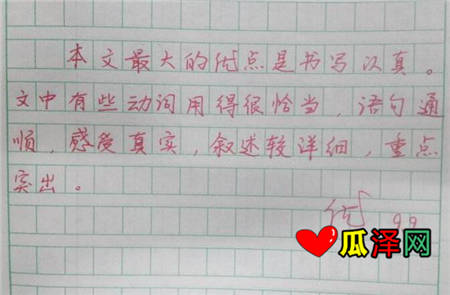 本文最大的优点是书写认真。
文中有些动词用得很恰当，语句通
顺，感受真实，叙述较详细，重点
突出。
优 99
瓜泽网